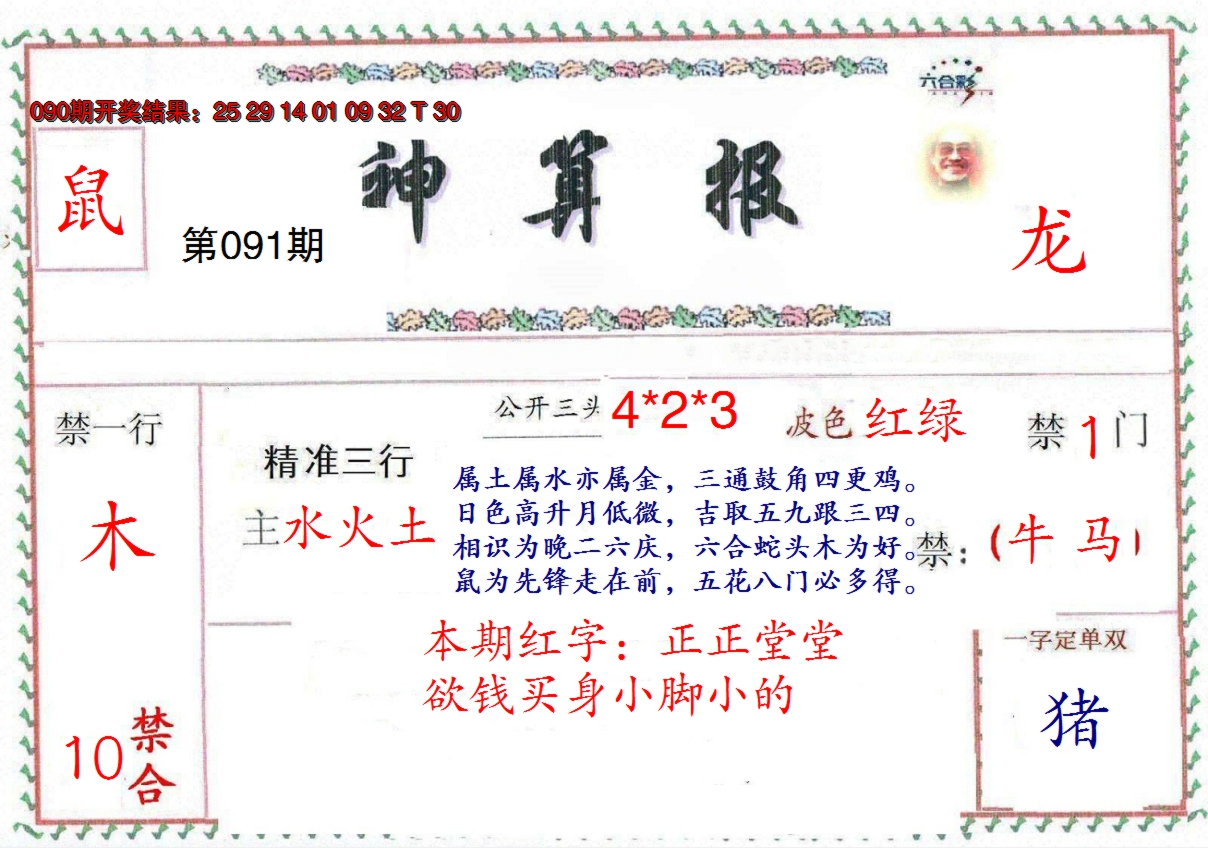 六合彩
090期开奖结果：25 29 14 01 09 32 T 30
鼠
神算报
第091期
龙
禁一行
木
10禁合
精准三行
主水火土
公开三头 4*2*3
波色 红绿
属土属水亦属金，三通鼓角四更鸡。
日色高升月低微，吉取五九跟三四。
相识为晚二六庆，六合蛇头木为好。
鼠为先锋走在前，五花八门必多得。
禁1门
禁：（牛 马）
本期红字：正正堂堂
欲钱买身小脚小的
一字定单双
猪